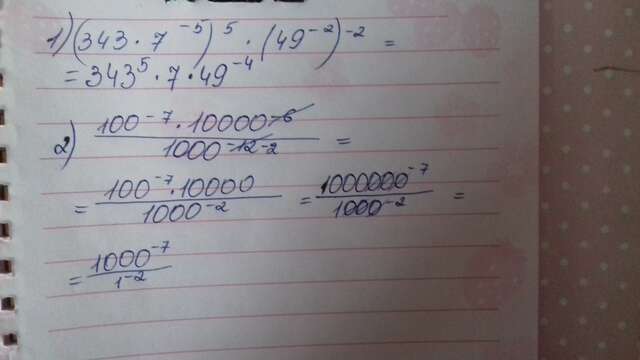 1) (343 · 7⁻⁵)⁵ · (49⁻²)⁻² =
= 343⁵ · 7 · 49⁻⁴
2) 100⁻⁷ · 10000⁻⁶ / 1000⁻¹²⁻² =
= 100⁻⁷ · 10000 / 1000⁻² = 1000000⁻⁷ / 1000⁻² =
= 1000⁻⁷ / 1⁻²